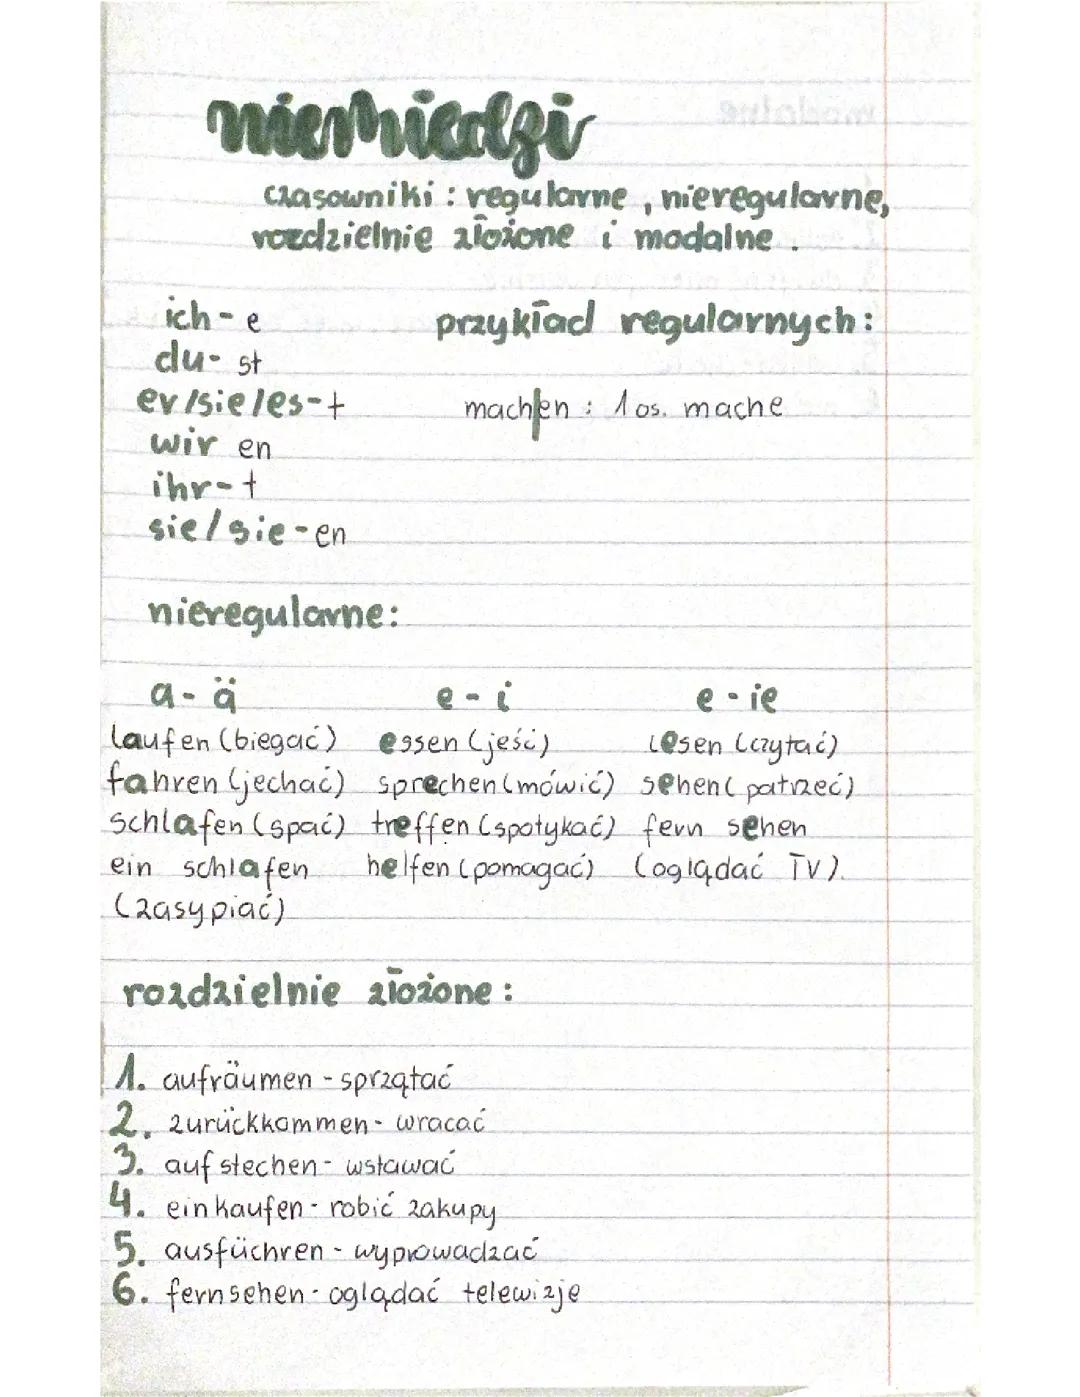 niemiecki
czasowniki : regularne , nieregularne,
rozdzielnie złożone i modalne .
ich - e przykład regularnych :
du - st
er /sie /es - t mach|en : 1 os. mache
wir en
ihr - t
sie / Sie - en
nieregularne :
a - ä e - i e - ie
laufen (biegać) essen (jeść) lesen (czytać)
fahren (jechać) sprechen (mówić) sehen ( patrzeć)
schlafen (spać) treffen (spotykać) fern sehen
ein schlafen helfen (pomagać) (oglądać TV).
(zasypiać)
rozdzielnie złożone :
1. aufräumen - sprzątać
2. zurückkommen - wracać
3. auf stechen - wstawać
4. ein kaufen - robić zakupy
5. ausfüchren - wyprowadzać
6. fern sehen - oglądać telewizje